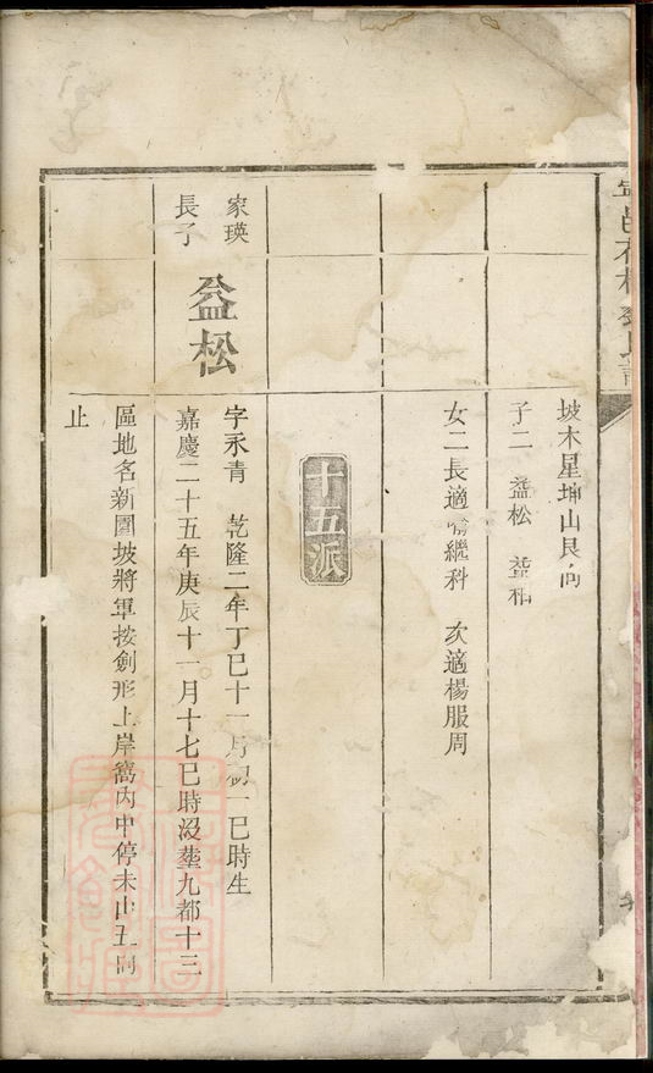 坡木星坤山艮向
子二 益松 益柏
女二長適喻繼科 次適楊服周
十五派
家瑛
長子
益松
字永青 乾隆二年丁巳十一月初一巳時生
嘉慶二十五年庚辰十一月十七巳時没塟九都十三
區地名新圍坡將軍按劍形上岸窩內中停未山丑向
止